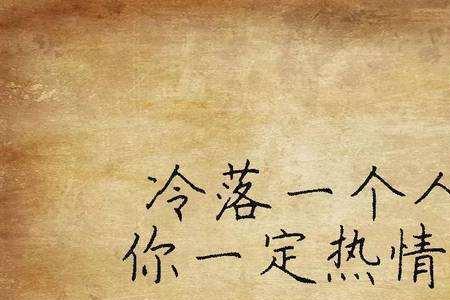 冷落一个人
你一定热情